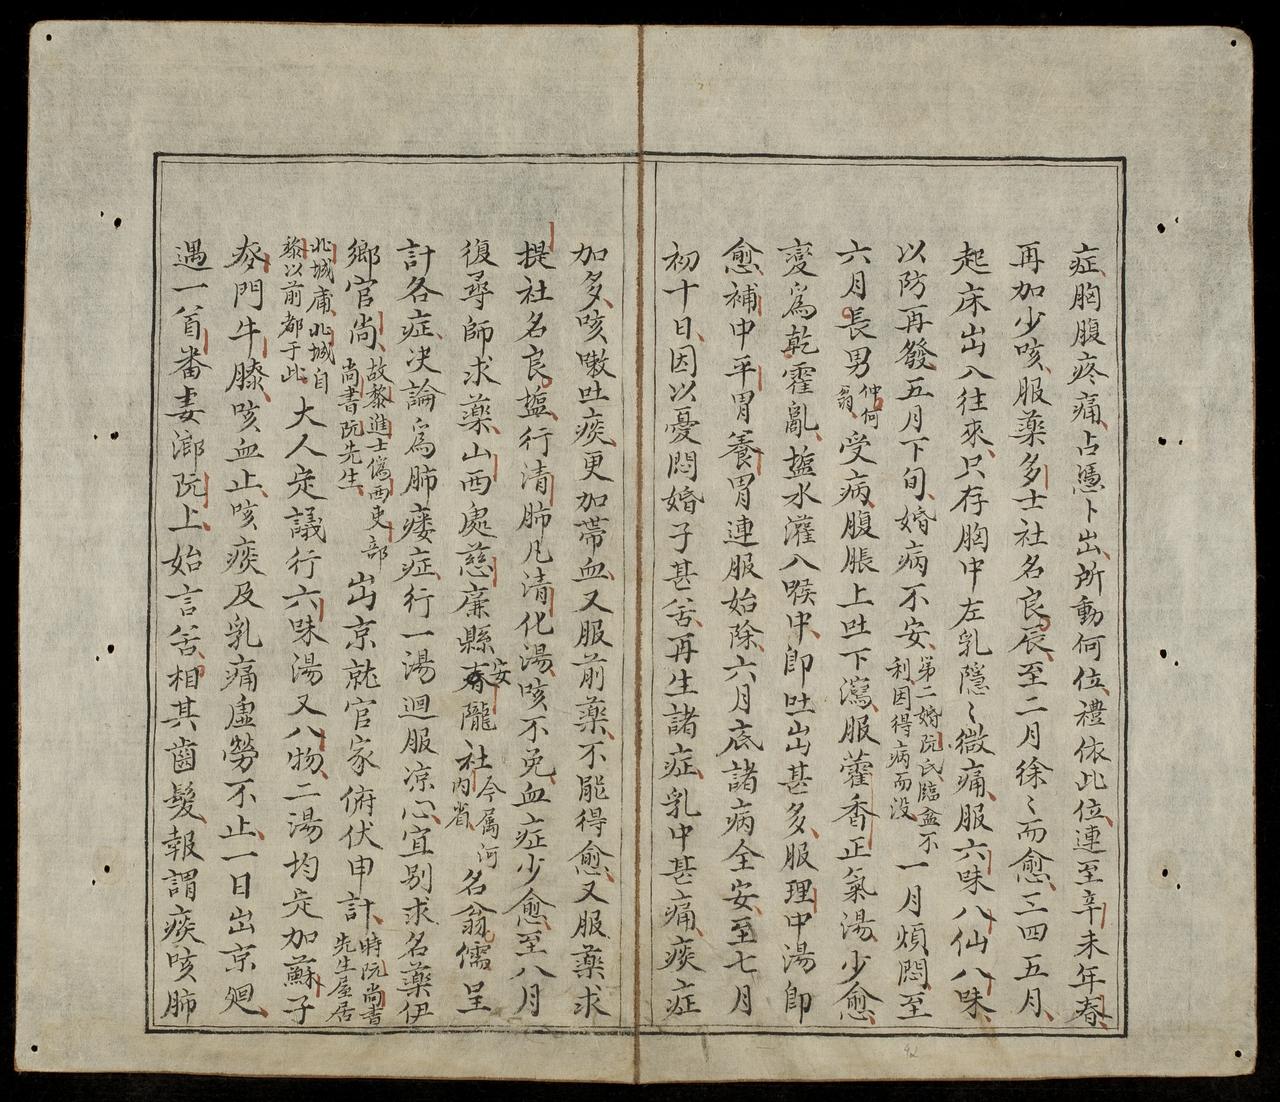 症胸腹疼痛占憑卜出所動何位禮依此位連至辛未年春
再加少咳服藥多士社名良辰至二月徐〻而愈三四五月
起床出入往來只存胸中左乳隱〻微痛服六味八仙八味
以防再發五月下旬婚病不安第二婚阮氏臨盆不利因得病而没一月煩悶至
六月長男仲何翁受病腹脹上吐下瀉服藿香正氣湯少愈
變爲乾霍亂塩水灌入喉中即吐出甚多服理中湯即
愈補中平胃養胃連服始除六月底諸病全安至七月
初十日因以憂悶婚子甚苦再生諸症乳中甚痛痰症
加多咳嗽吐痰更加帶血又服前藥不能得愈又服藥求
提社名良塩行清肺凡清化湯咳不免血症少愈至八月
復尋師求藥山西處慈廉縣安隴社今属河内省名翁儒呈
計各症决論爲肺痿症行一湯迴服凉心宜别求名藥伊
鄉官尚故黎進士僞西吏部尚書阮先生出京就官家俯伏申計時阮尚書先生屋居
北城庯北城自黎以前都于此大人定議行六味湯又八物二湯均定加蘇子
麥門牛膝咳血止咳痰及乳痛虛勞不止一日出京迴
遇一首番妻瑯阮上始言苦相其齒髮報謂痰咳肺